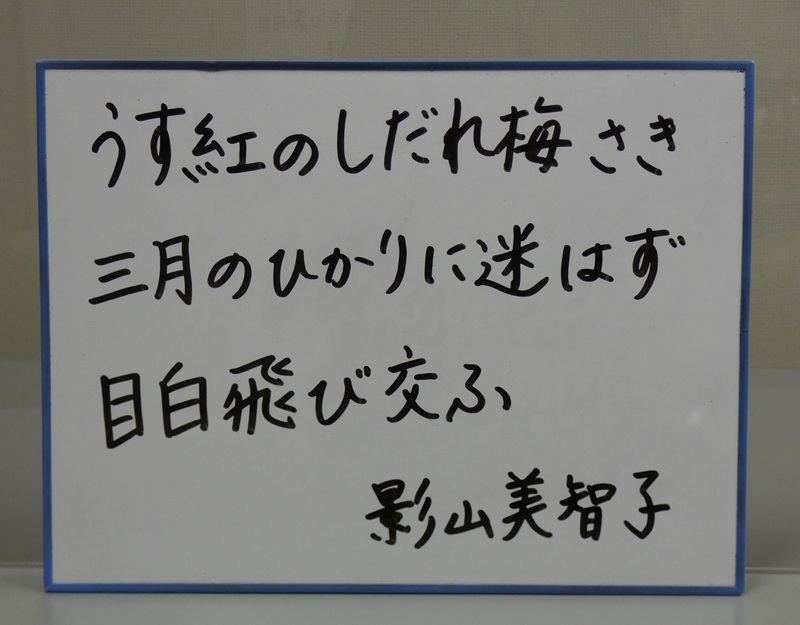 うす紅のしだれ梅さき
三月のひかりに迷はず
目白飛び交ふ
影山美智子